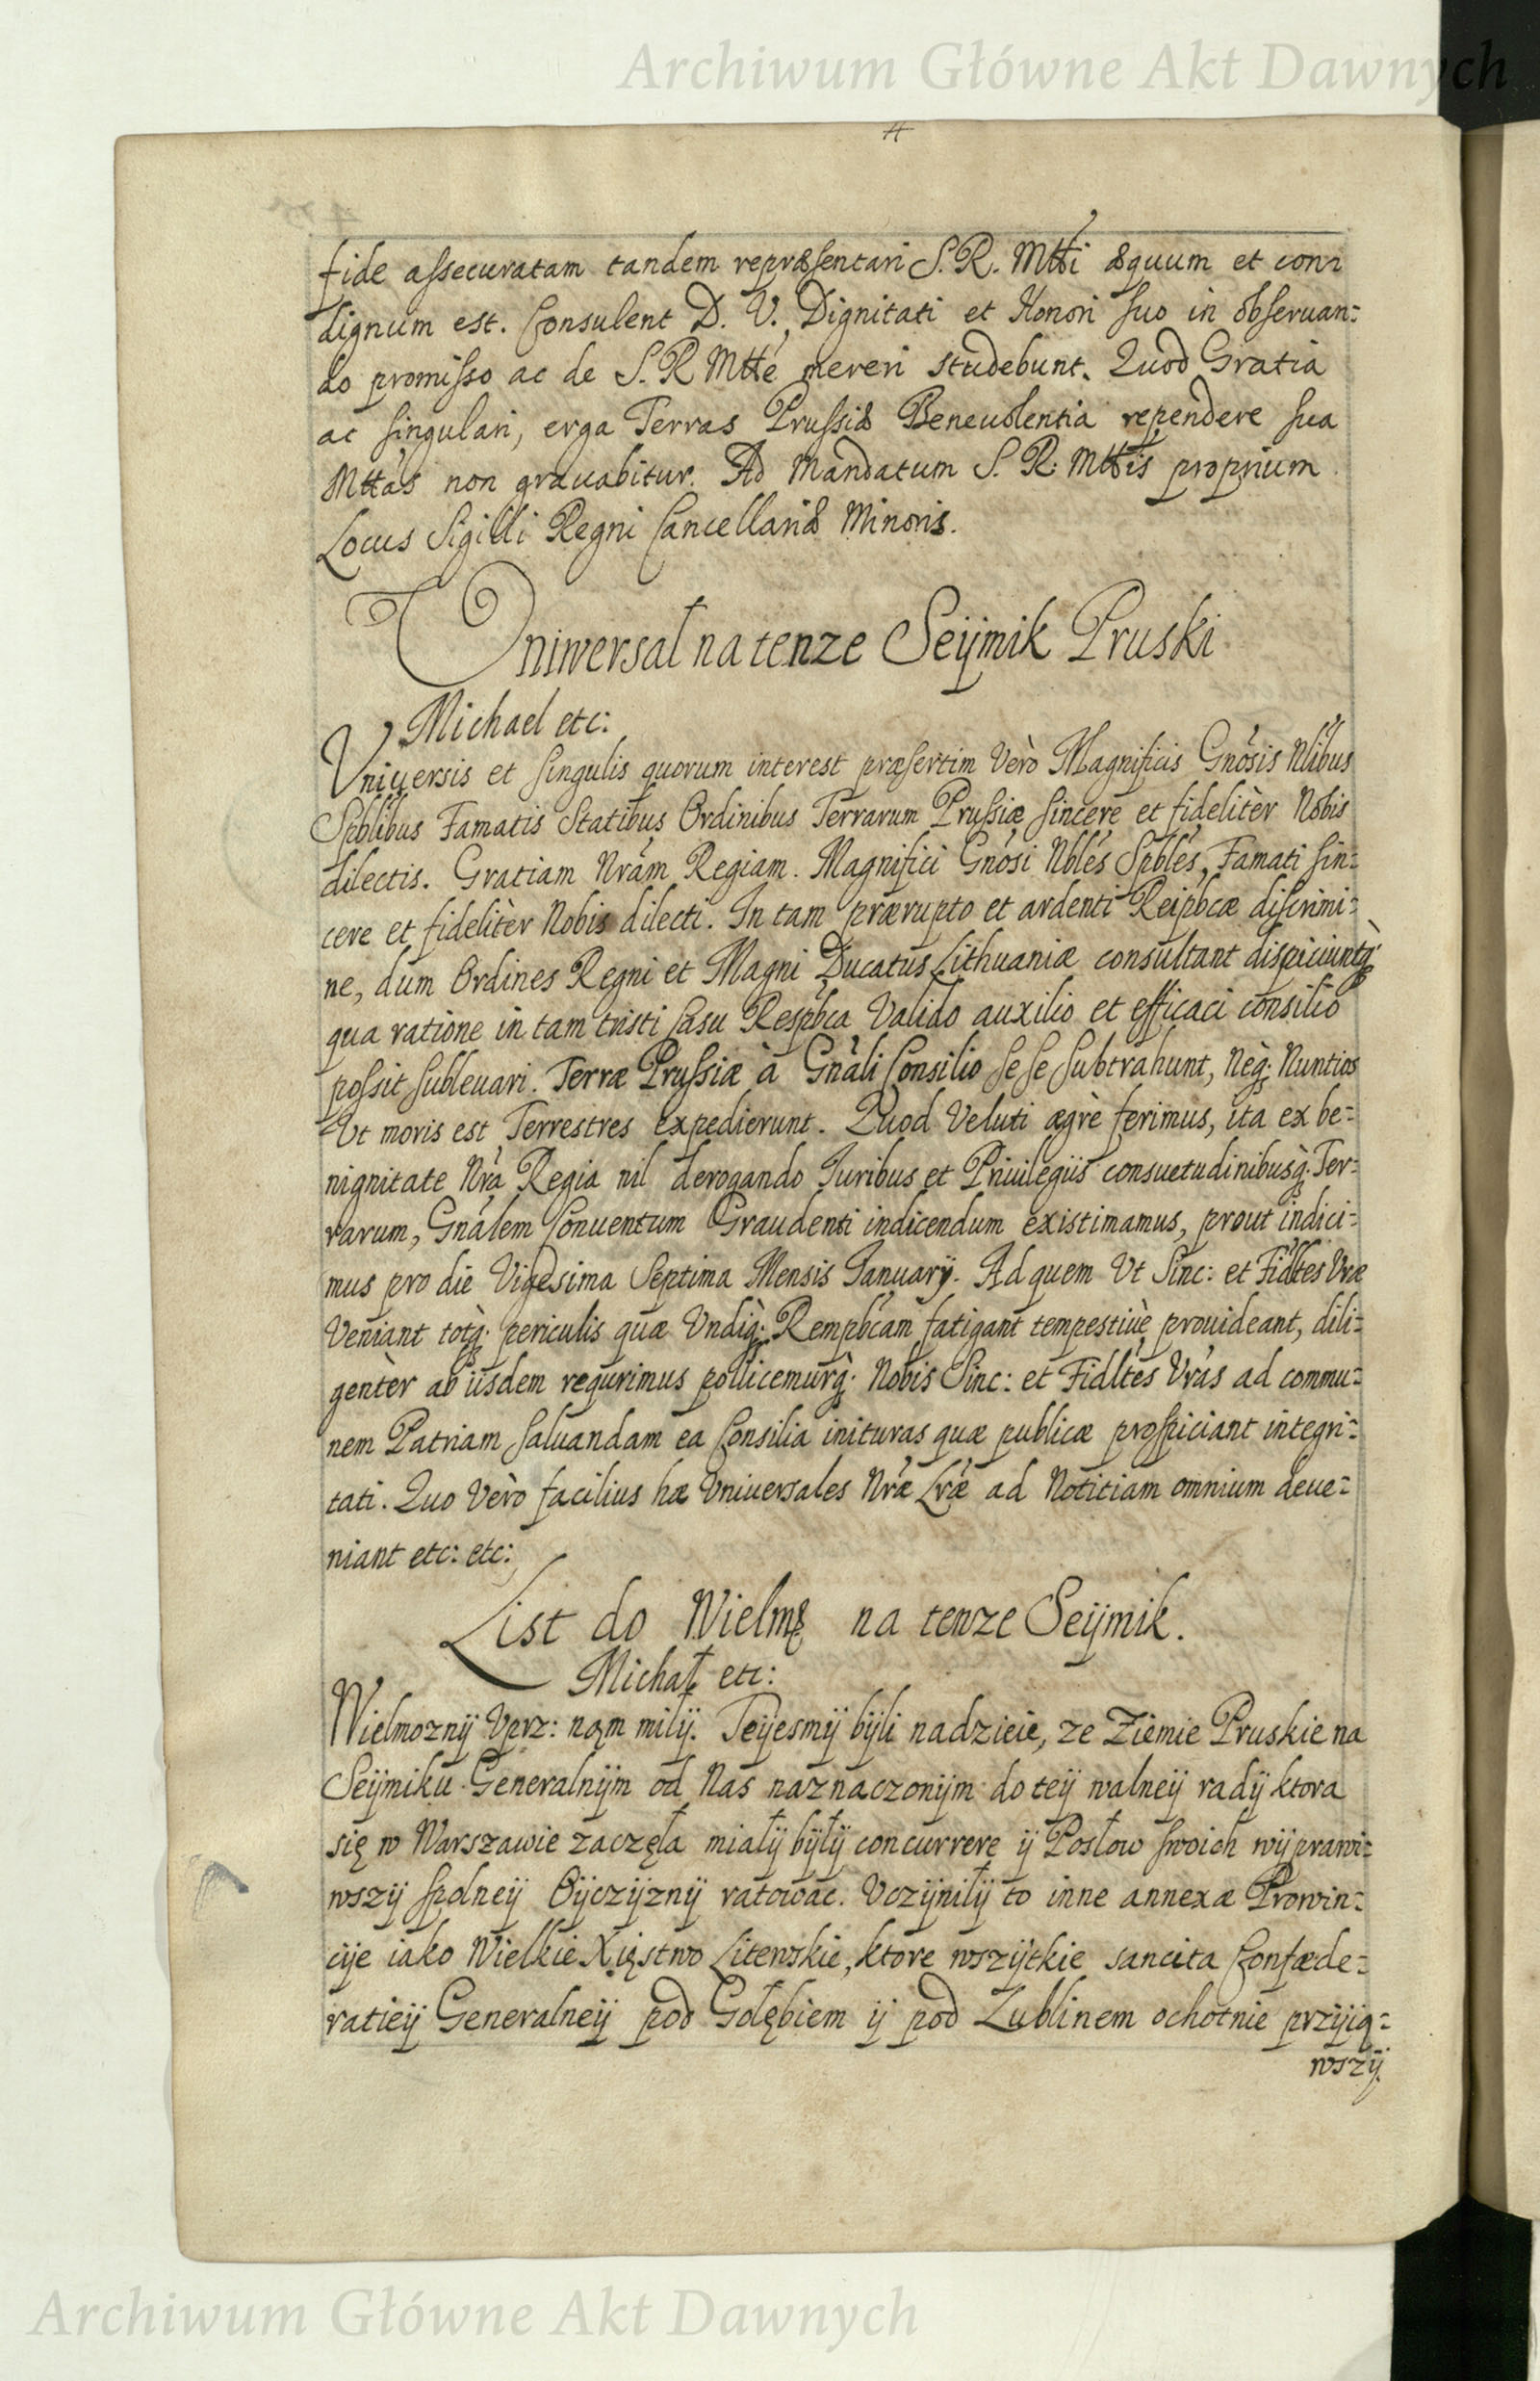 Archiwum Główne Akt Dawnych
fide assecuratam tandem repræsentari S. R. Mtti æquum et con¬
dignum est. Consulent D. V. Dignitati et Honori suo in observan:
do promisso ac de S. R Mtte mereri studebunt. Quod Gratia
ac singulari, erga Terras Prussiæ Beneuolentia rependere sua
Mttas non grauabitur. Ad Mandatum S. R. Mttis proprium.
Locus Sigilli Regni Cancellariæ Minoris.
Uniwersał na tenze Seijmik Pruski
Michael etc:
Vniuersis et singulis quorum interest præsertim Verò Magnificis Gnosis Nlibus
Spblibus Famatis Statibus Ordinibus Terrarum Prussiæ sincere et fidelitèr Nobis
dilectis. Gratiam Nram Regiam. Magnifici Gnosi Nbles Spbles, Famati sin:
cere et fidelitèr Nobis dilecti. In tam prærupto et ardenti Reipbcæ discrimi:
ne, dum Ordines Regni et Magni Ducatus Lithuaniæ consultant dispiciuntq;
qua ratione in tam tristi Casu Respbca Valido auxilio et efficaci consilio
possit subleuari. Terræ Prussiæ à Gnali Consilio sese subtrahunt, Neq; Nuntios
Vt moris est Terrestres expedierunt. Quod Veluti ægrè ferimus, ita ex be:
nignitate Nra Regia nil derogando Iuribus et Priuilegiis consuetudinibusq; Ter:
rarum, Gnalem Conuentum Graudenti indicendum existimamus, prout indici:
mus pro die Vigesima Septima Mensis Ianuarij. Ad quem Vt Sinc: et Fidltes Vræ
Veniant totq; periculis quæ Vndiq; Rempbcam fatigant tempestiuè prouideant, dili:
gentèr ab iisdem requrimus pollicemurq; Nobis Sinc: et Fidltes Vras ad commu:
nem Patriam saluandam ea Consilia inituras quæ publicæ prospiciant integri:
tati. Quo Verò facilius hæ Vniuersales Nræ Lræ ad Notitiam omnium deue:
niant etc: etc:
List do Wielmę na tenze Seijmik.
Michał etc:
Wielmoznij Vprz: nąm milij. Teijesmij bijli nadzieie, ze Ziemie Pruskie na
Seijmiku Generalnijm od Nas naznaczonijm do teij walneij radij ktora
się w Warszawie zaczęła miałij bijłij concurrere ij Posłow swoich wijprawi:
wszij spolneij Oijczijznij ratowac. Vczijniłij to inne annexæ Prowin:
cije iako Wielkie Xięstwo Litewskie, ktore wszijtkie sancita Confæde:
ratieij Generalneij pod Gołębiem ij pod Lublinem ochotnie przijią:
wszij.
Archiwum Główne Akt Dawnych